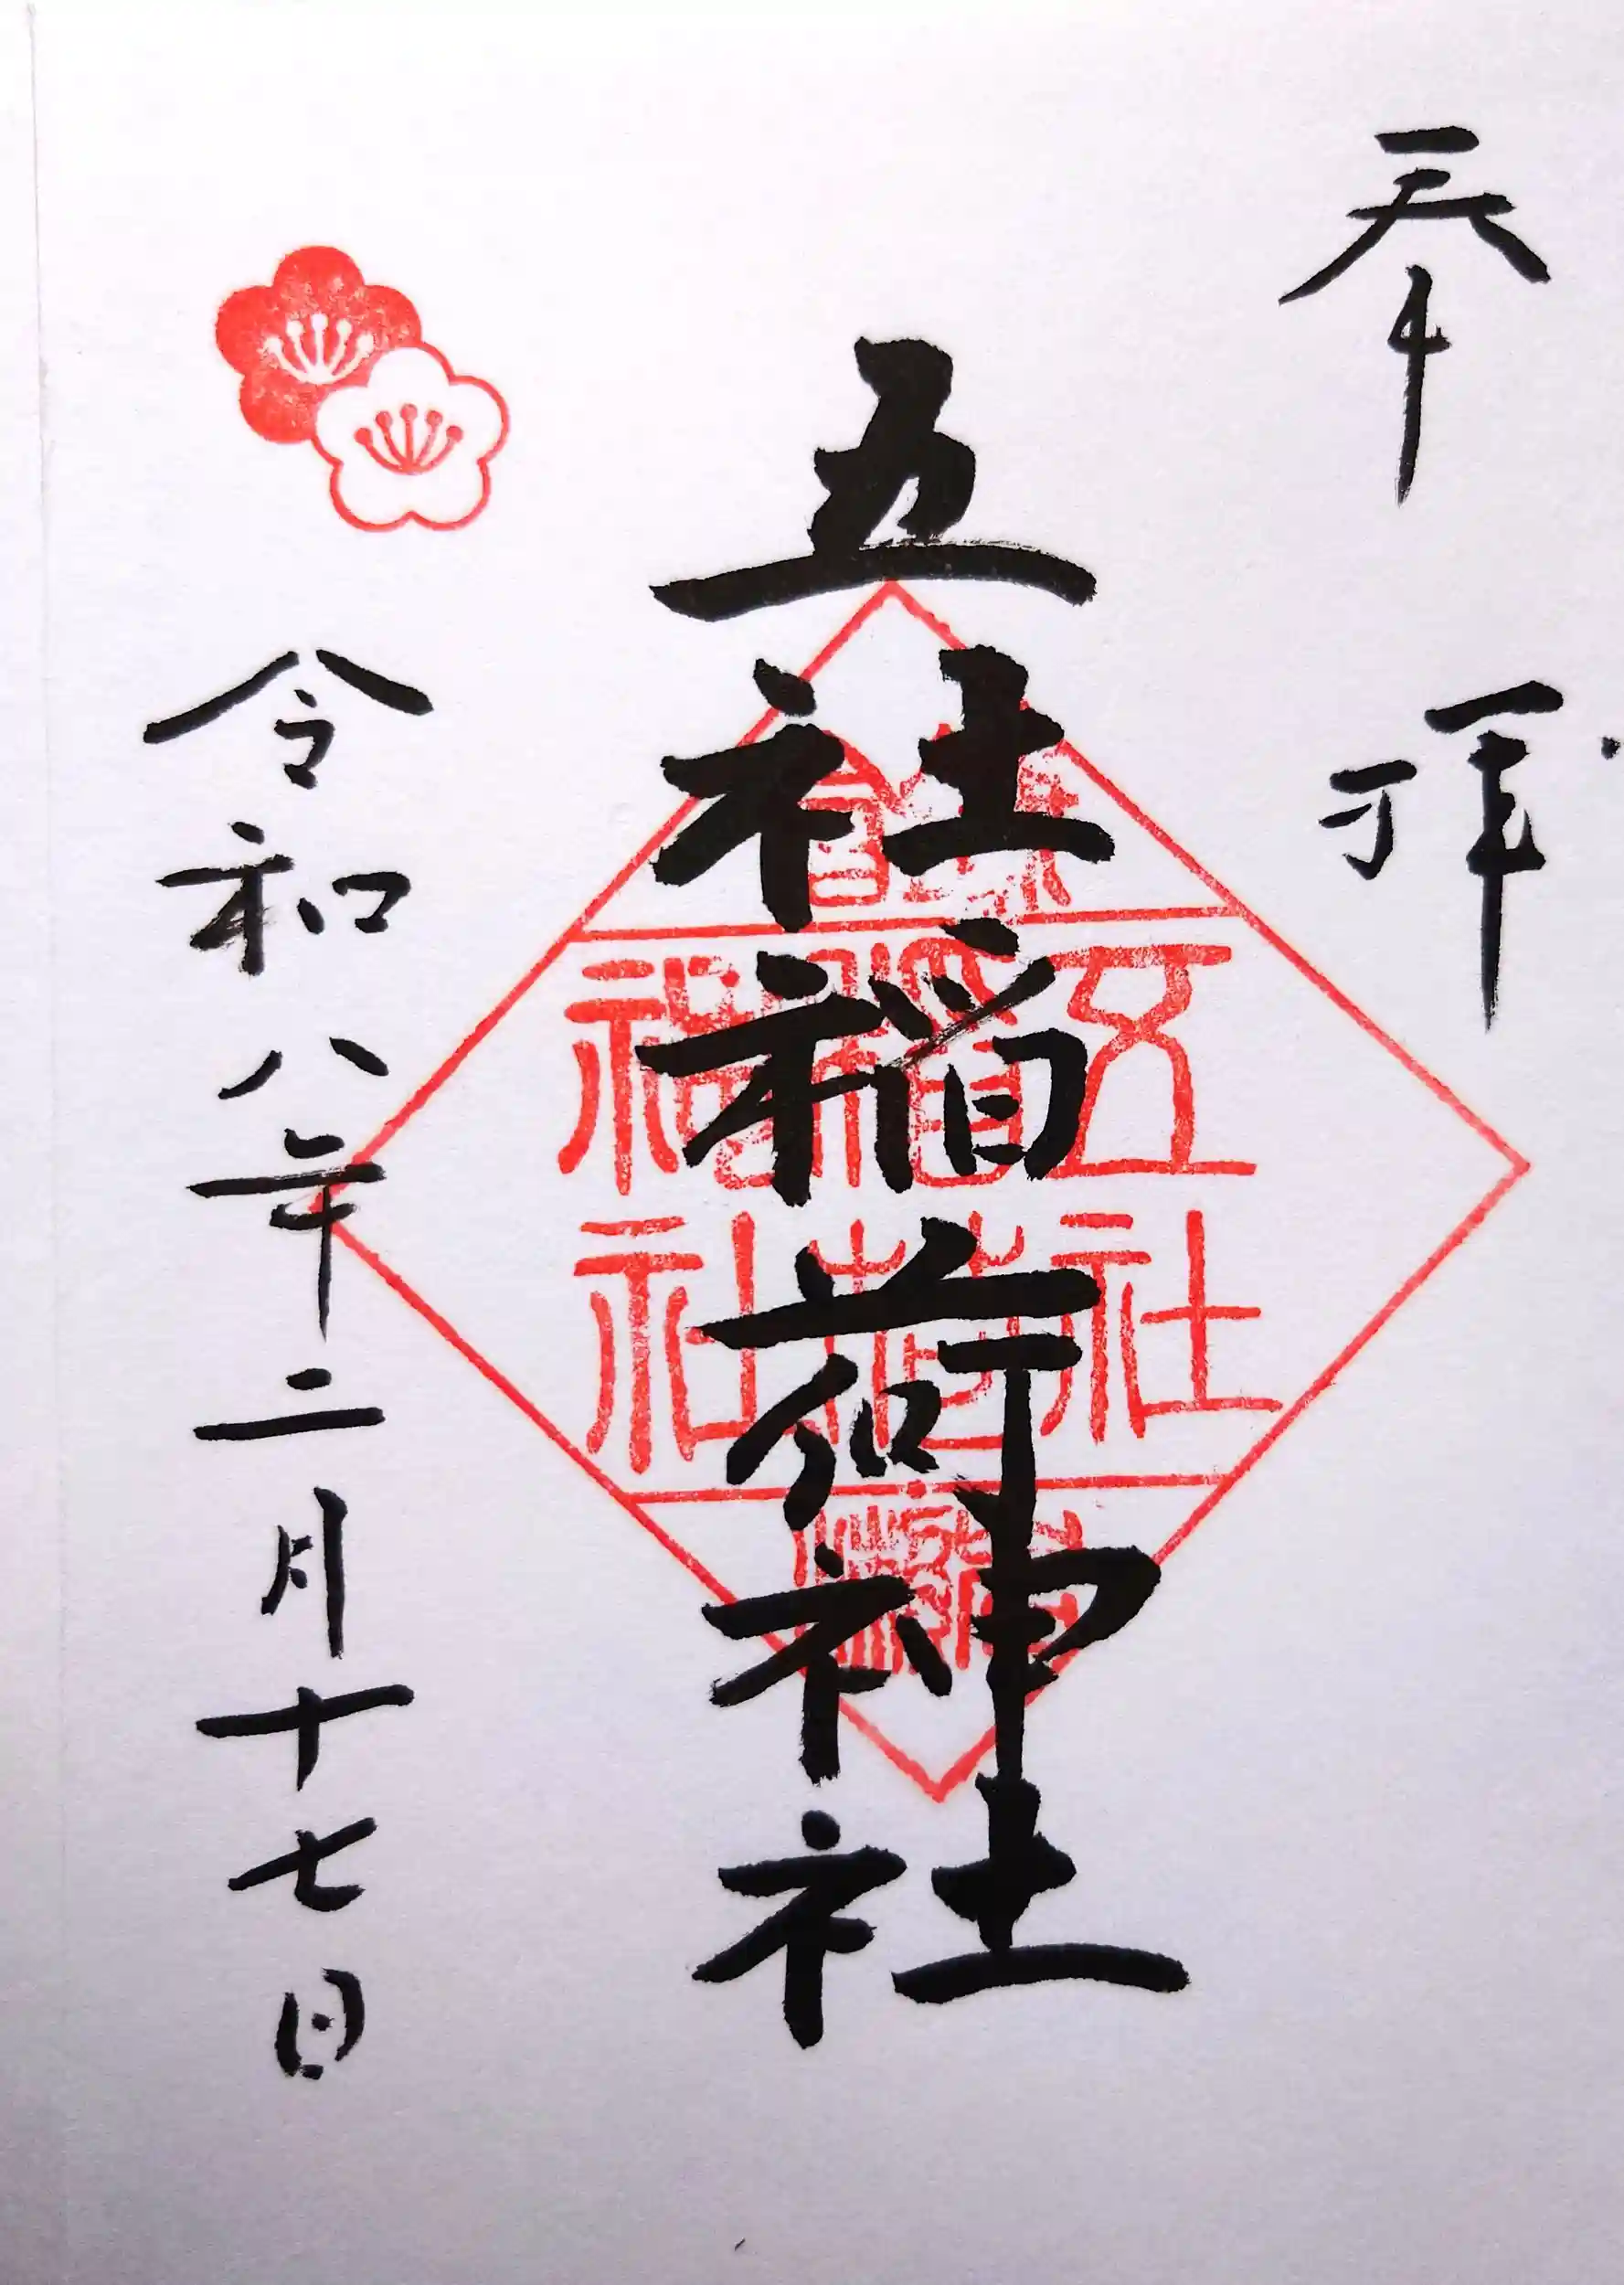 奉拝
五社稲荷神社
五社
稲荷
神社
令和八年二月十七日